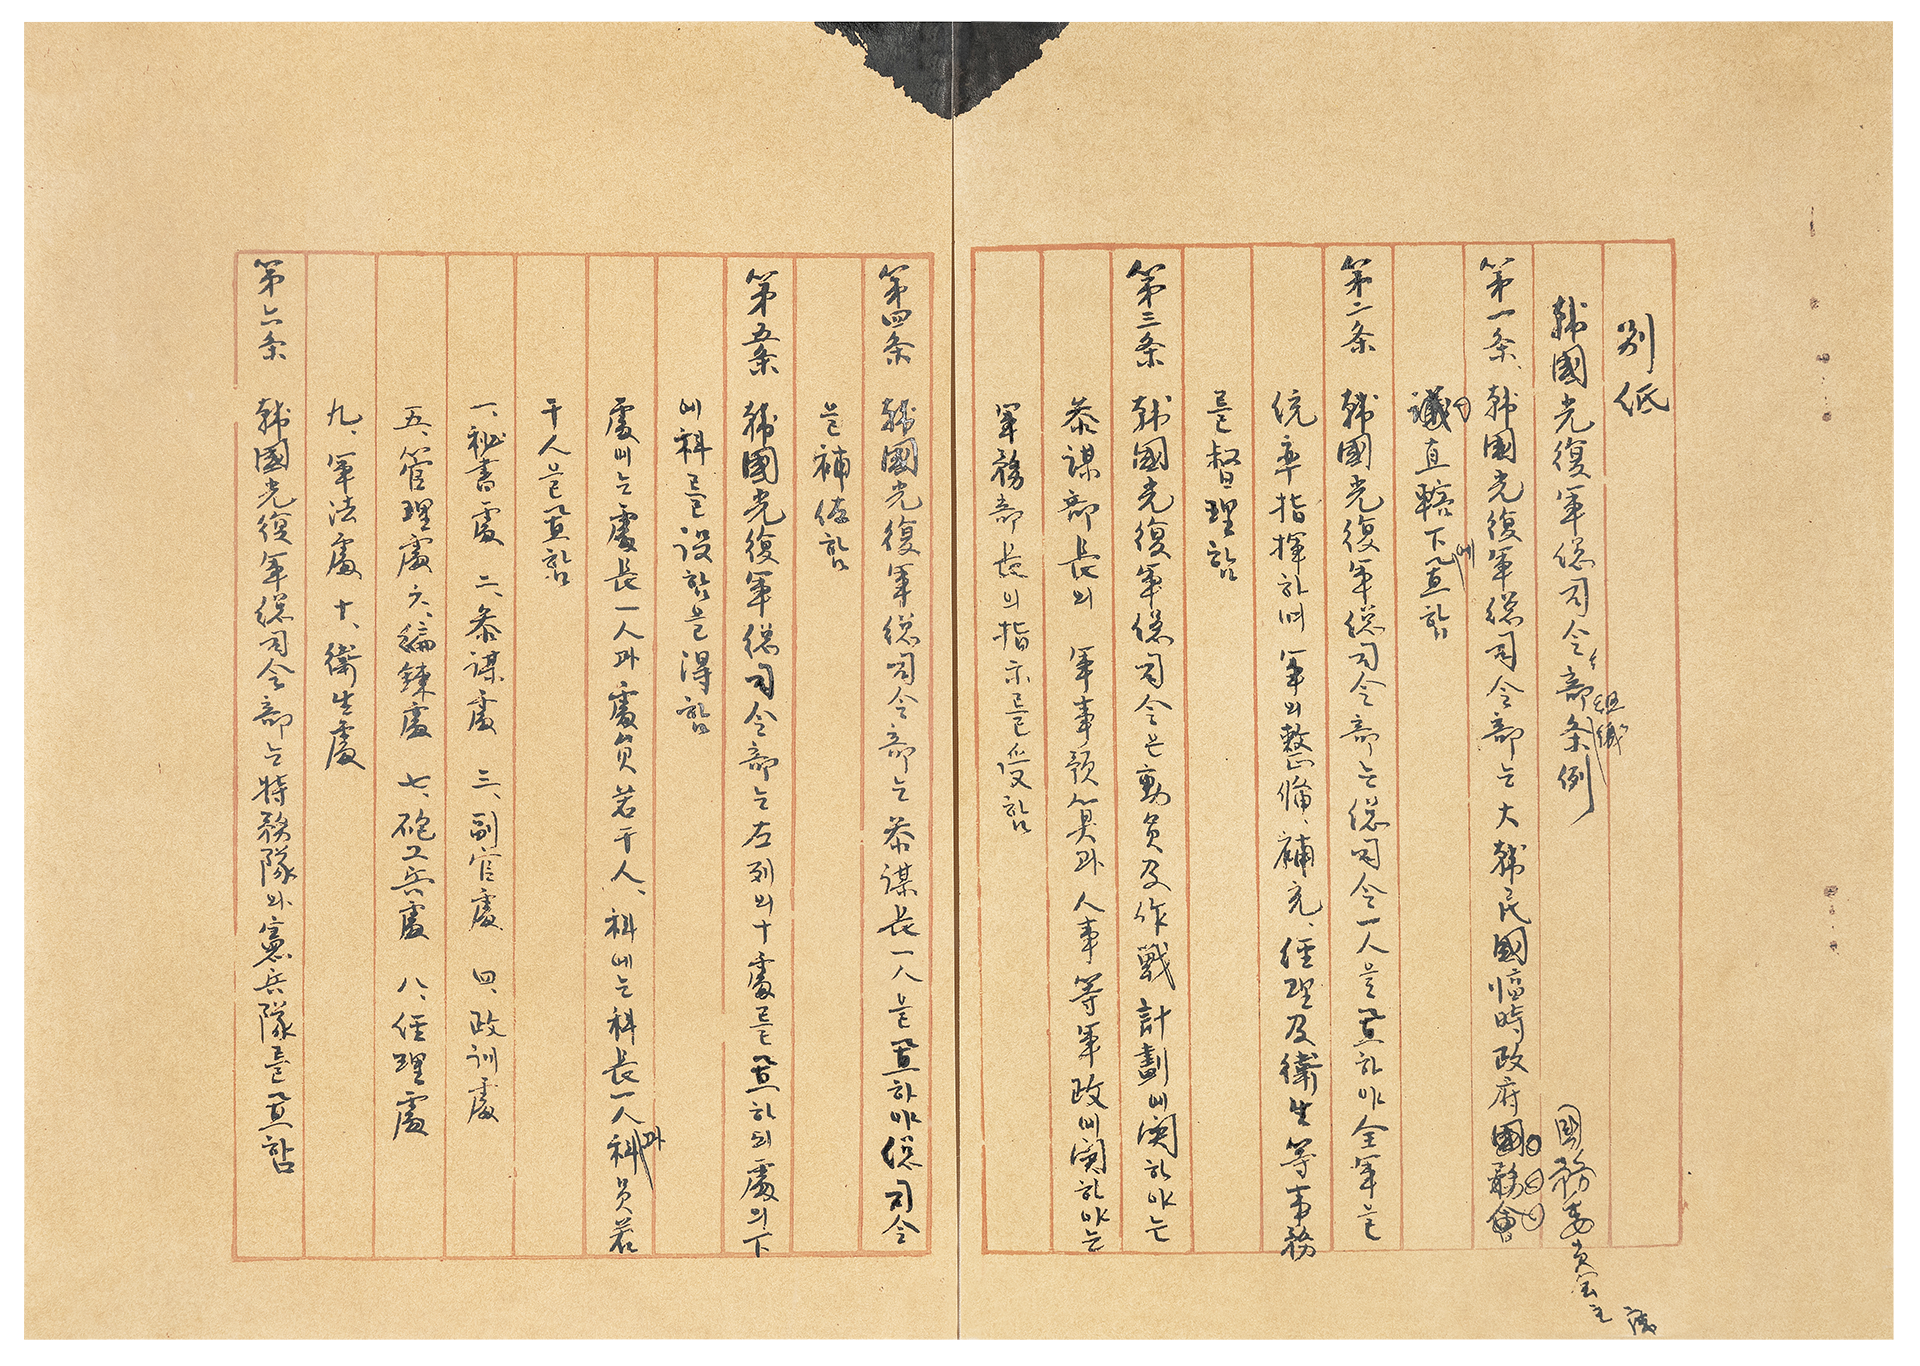 別 紙
韓國光復軍総司令部条例
組織
第一条、韓國光復軍総司令部는 大韓民國臨時政府國務會
國務委員会主
議直轄下에置함
第二条 韓國光復軍総司令部는 総司令一人을置하야全軍을
統率指揮하며 軍의整備、補充、経理及衛生等事務
를督理함
第三条 韓國光復軍総司令은動員及作戰計劃에関하야는
参謀部長의 軍事預算과 人事等軍政에関하야는
軍務部長의指示를受함
第四条 韓國光復軍総司令部는 参謀長一人을置하야総司令
을補佐함
第五条 韓國光復軍総司令部는左列의十處를置하되處의下
에科를設함을得함
處에는處長一人과處員若干人、科에는科長一人과科員若
干人을置함
一、秘書處 二、参謀處 三、副官處 四、政訓處
五、管理處 六、編鍊處 七、砲工兵處 八、経理處
九、軍法處 十、衛生處
第六条 韓國光復軍総司令部는特務隊와憲兵隊를置함